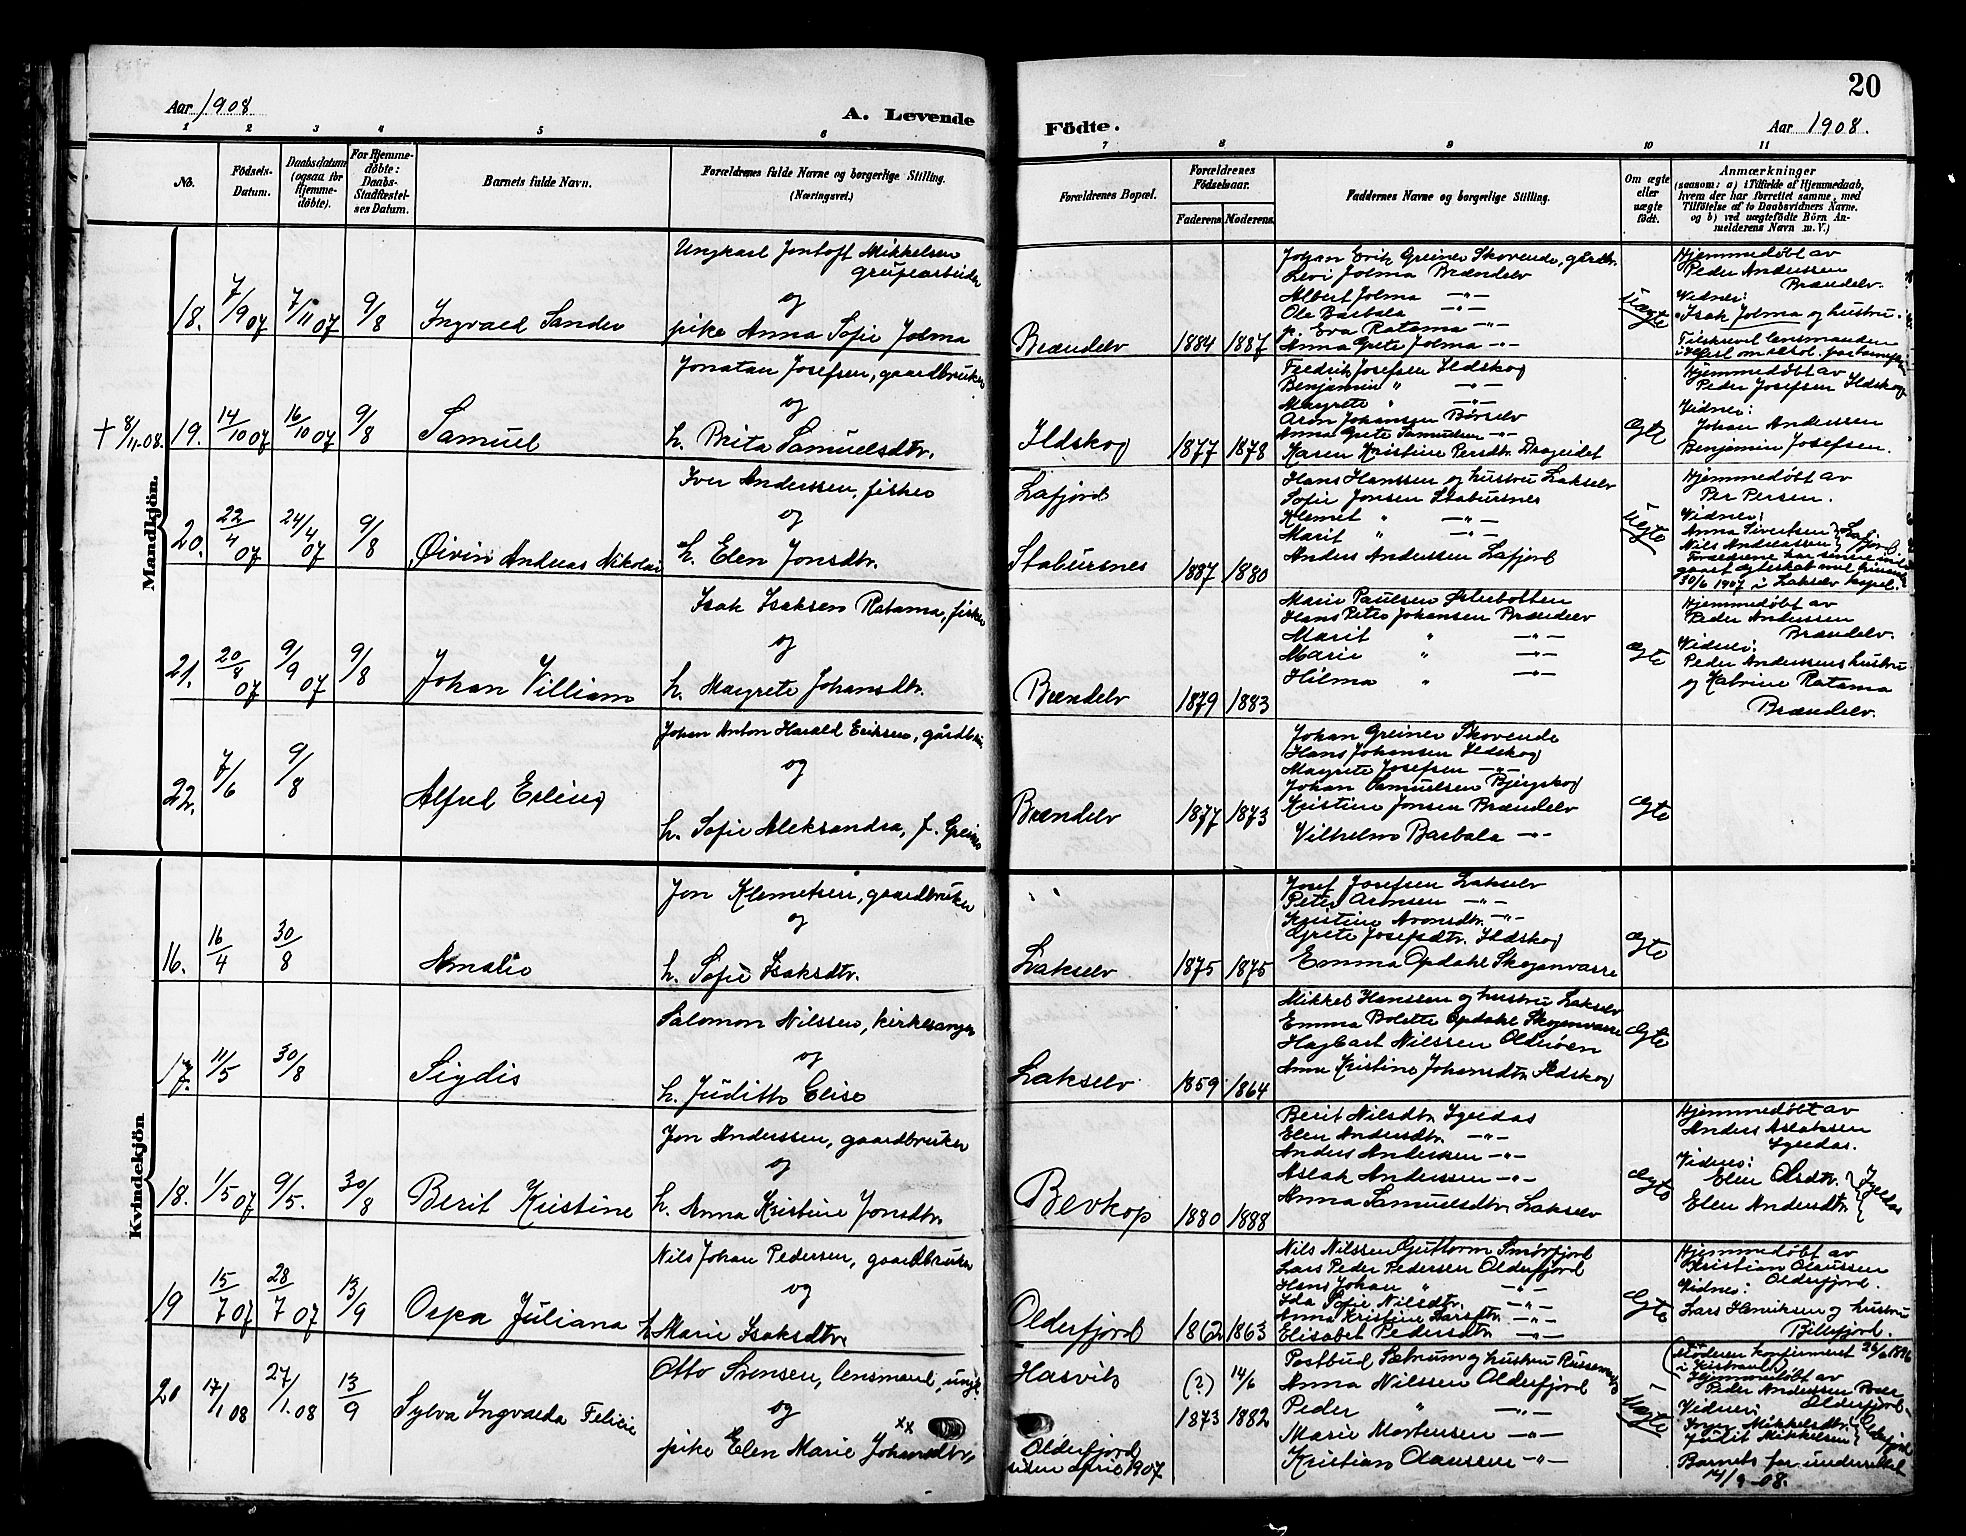 20
Aar 1908.
A. Levende
Födte.
Aar 1908.
1 2 3 4 5 6 7 8 9 10 11
No.
Födsels-
Datum.
Daabsdatum
(ogsaa for
Hjemme-
döbte).
For Hjemme-
döbte:
Daabs-
Stadfæstel-
ses Datum.
Barnets fulde Navn.
Forældrenes fulde Navne og borgerlige Stilling.
(Næringsvei.)
Forældrenes Bopæl.
Forældrenes
Födselsaar.
Faderens. Moderens.
Faddernes Navne og borgerlige Stilling.
Om ægte
eller
uægte
födt.
Anmærkninger
(saasom: a) i Tilfælde af Hjemmedaab,
hvem der har forrettet samme, med
Tilföielse af to Daabsvidners Navne.
og b) ved uægtefödte Börn An-
melderens Navn m. V.)
Mandkjön.
18. 7/9 07 7/11 07 9/8 Ingvald Sander
Ungkarl Jentoft Mikkelsen
grubearbeider
og
pike Anna Sofie Jolma
Brændelv 1884 1887
Johan Erik Greiner Skovende, gårdbr.
Levi Jolma Brændelv
Albert Jolma -"-
Ole Barbala -"-
p. Eva Ratama -"-
Anna Grete Jolma -"-
Uægte
Hjemmedøbt av
Peder Anderssen
Brændelv.
Vidner:
Isak Jolma og hustru.
Tilskrevet lensmanden
+ 8/11-08. 19. 14/10 07 16/10 07 9/8 Samuel
Jonatan Josefsen, gaardbruker
og
h. Brita Samuelsdtr.
Ildskog 1877 1878
Fredrik Josefsen Ildskog
Benjamin " -"-
Margrete " -"-
Aron Johansen Børselv
Anna Grete Samuelsen -"-
Karen Kristine Persdtr. Drageidet
Ægte
Hjemmedøbt av
Peder Josefsen Ildskog
Vidner:
Johan Anderssen
Benjamin Josefsen.
20. 22/4 07 24/4 07 9/8 Øivin Andreas Nikolai
Iver Anderssen, fisker
og
h. Elen Jonsdtr.
Lafjord
Stabursnes 1887 1880
Hans Hanssen og hustru Lakselv
Sofie Jonsen Stabursnes
Klemet " -"-
Marit " -"-
Anders Anderssen Lafjord
Uegte
Hjemmedøbt av
Per Persen.
Vidner:
Anna Sivertsen } Lafjord.
Nils Anderssen
Forældrene har senere ind-
gaaet ægteskab med hinanden
30/6 1907 i Lakselv kapel.
21. 20/8 07 9/9 07 9/8 Johan William
Isak Isaksen Ratama, fisker
og
h. Margrete Johansdtr.
Brændelv 1879 1883
Marie Paulsen Østerbotten
Hans Peter Johansen Brændelv
Marit " -"-
Marie " -"-
Hilma " -"-
Ægte
Hjemmedøbt av
Peder Anderssen
Brændelv.
Vidner:
Peder Anderssens hustru
og Katrine Ratama
Brændelv.
22. 7/6 9/8 Alfred Erling
Johan Anton Harald Eriksen, gårdbruker
og
h. Sofie Aleksandra, f. Greiner
Brændelv 1877 1873
Johan Greiner Skovende
Hans Johansen Ildskog
Margrete Josefsen -"-
Johan Samuelsen Bjergskog
Kristine Jonsen Brændelv
Vilhelm Barbala -"-
Ægte
Kvindekjön
16. 16/4 30/8 Amalie
Jon Klemetsen, gaardbruker
og
h. Sofie Isaksdtr.
Lakselv 1875 1875
Josef Josefsen Lakselv
Peter Aronsen -"-
Kristine Aronsdtr. -"-
Grete Josefsdtr. Ildskog
Emma Opdahl Skoganvarre
Ægte
17. 11/5 30/8 Sigdis
Salomon Nilssen, kirkesanger
og
h. Juditte Elise
Lakselv 1859 1864
Mikkel Hanssen og hustru Lakselv
Emma Bolette Opdahl Skoganvarre
Hagbart Nilssen Olderøen
Anna Kristine Johansdtr. Ildskog
Ægte
18. 1/5 07 9/5. 30/8 Berit Kristine
Jon Anderssen, gaardbruker
og
h. Anna Kristine Jonsdtr.
Bevkop 1880 1888
Berit Nilsdtr. Igeldas
Elen Andersdtr. -"-
Anders Anderssen -"-
Aslak Anderssen -"-
Anna Samuelsdtr. Lakselv
Ægte
Hjemmedøbt av
Anders Aslaksen
Igeldas.
Vidner:
Elen Olsdtr. } Igeldas
Elen Andersdtr.
19 15/7 07 28/7 07 13/9 Ospa Juliana
Nils Johan Pedersen, gaardbruker
og
h. Marie Isaksdtr.
Olderfjord 1862 1863
Nils Nilssen Guttorm Smørfjord
Lars Peder Pedersen Olderfjord
Hans Johan " -"-
Ida Sofie Nilsdtr. -"-
Anna Kristine Larsdtr. -"-
Elisabet Pedersdtr. -"-
Ægte
Hjemmedøbt av
Kristian Olaussen
Olderfjord.
Vidner:
Lars Henriksen og hustru
Billefjord.
20 17/1 08 27/1.08 13/9 Sylva Ingvarda Felicie
Otto Svensen, lensmand, ungk.
og
pike Elen Marie Johansdtr. xx
Hasvik
Olderfjord
siden april 1907
(?) 1873 14/6 1882
Postbud Sætrum og hustru Russenes
Anna Nilssen Olderfjord
Peder " -"-
Marie Mortensen -"-
Kristian Olaussen -"-
Uægte
(Moderen konfirmeret 26/6 1896
i Kistrand)
Hjemmedøbt av
Peder Anderssen Boer
Olderfjord.
Vidner:
Inger Mikkelsdtr. } Olderfjord
Judit Mikkelsen
Barnets far underrettet
14/9-08.